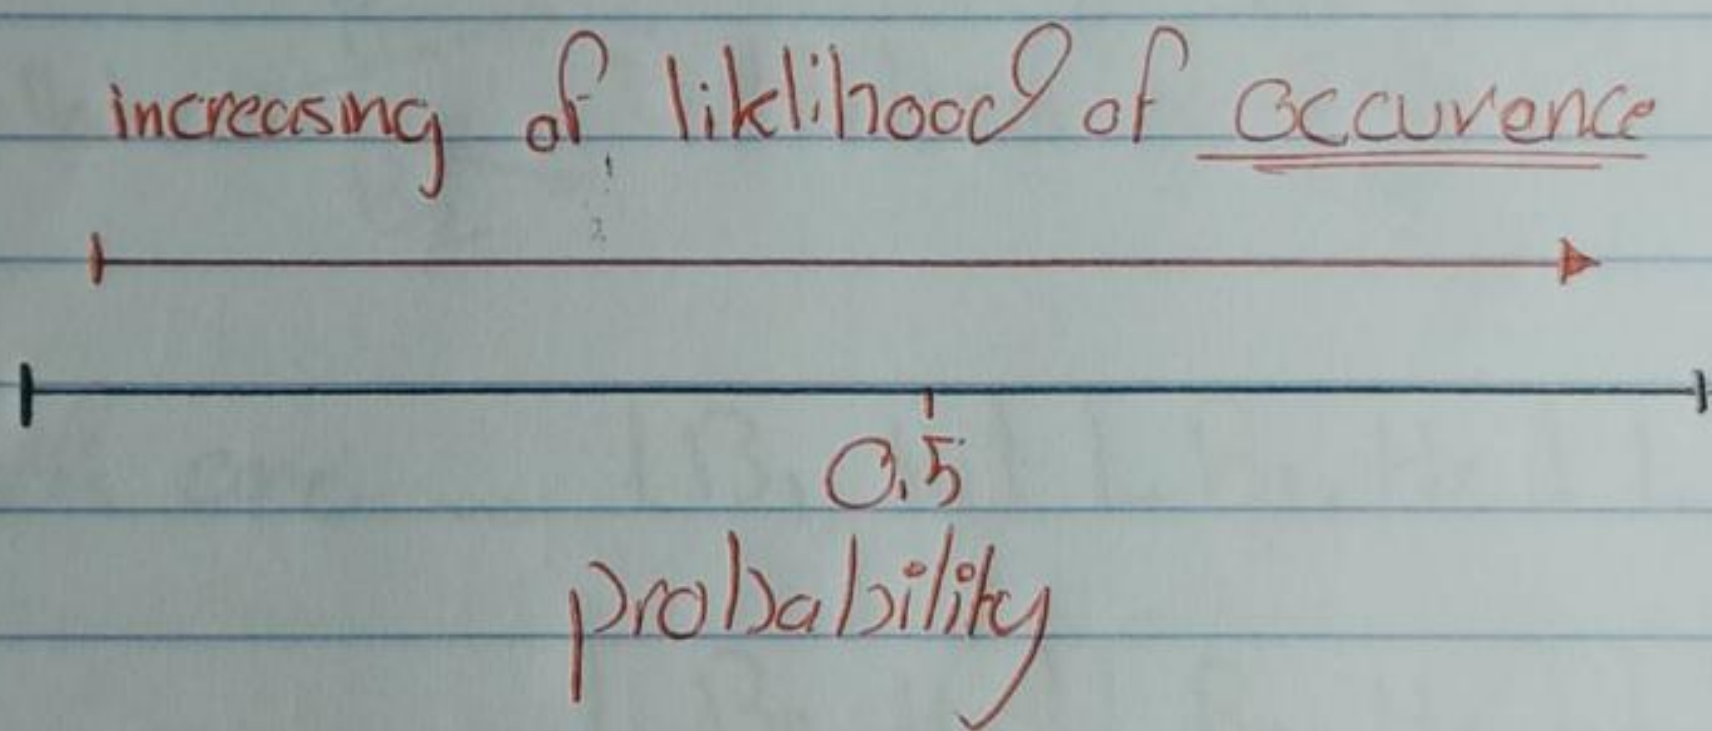 increasing of liklihood of occurence
0.5
probability